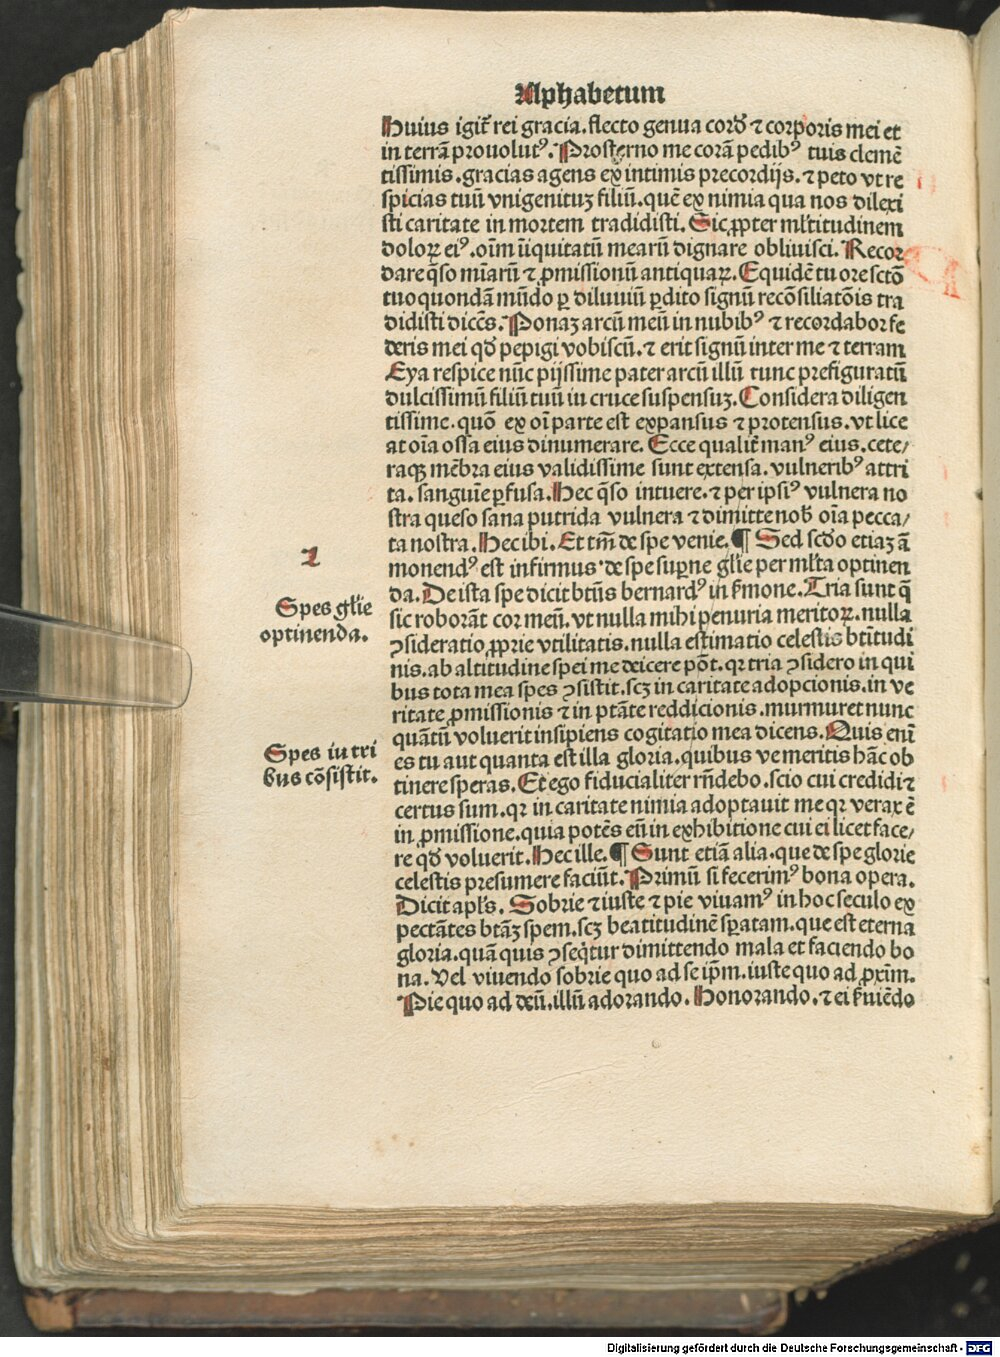 Alphabetum
Huius igit̃ rei gracia. flecto genua cord̕ ⁊ corporis mei et
in terrã prouolutꝰ. Prosterno me corã pedibꝰ tuis clemẽ
tissimis. gracias agens ex intimis precordijs. ⁊ peto vt re
spicias tuũ vnigenituʒ filiũ. quẽ ex nimia qua nos dilexi
sti caritate in mortem tradidisti. Sic ꝓpter ml̕titudinem
doloꝝ eiꝰ. oĩm ĩiquitatũ mearũ dignare obliuisci. Recor
dare q̃so mĩarũ ⁊ ꝓmissionũ antiquaꝝ. Equidẽ tu ore sctõ
tuo quondã mũdo ꝑ diluuiũ ꝑdito signũ recõsiliatõis tra
didisti dicẽs. Ponaʒ arcũ meũ in nubibꝰ ⁊ recordabor fe
deris mei qd̕ pepigi vobiscũ. ⁊ erit signũ inter me ⁊ terram
Eya respice nũc pijssime pater arcũ illũ tunc prefiguratũ
dulcissimũ filiũ tuũ iu cruce suspensuʒ. Considera diligen
tissime. quõ ex oĩ parte est expansus ⁊ protensus. vt lice
at oĩa ossa eius dinumerare. Ecce qualit̃ manꝰ eius. cete/
raqʒ mẽbra eius validissime sunt extensa. vulneribꝰ attri
ta. sanguĩe ꝑfusa. Hec q̃so intuere. ⁊ per ipsiꝰ vulnera no
stra queso sana putrida vulnera ⁊ dimitte nob̕ oĩa pecca/
ta nostra. Hec ibi. Et tm̃ de spe venie. ¶ Sed scd̕o etiaʒ ã
monendꝰ est infirmus de spe suꝑne gl̕ie per ml̕ta optinen
da. De ista spe dicit btũs bernardꝰ in ẜmone. Tria sunt q̃
sic roborãt cor meũ. vt nulla mihi penuria meritoꝝ. nulla
ꝯsideratio ꝓprie vtilitatis. nulla estimatio celestis btĩtudi
nis. ab altitudine spei me deicere põt. qꝛ tria ꝯsidero in qui
bus tota mea spes ꝯsistit. scʒ in caritate adopcionis. in ve
ritate ꝓmissionis ⁊ in ptãte reddicionis. murmuret nunc
quãtũ voluerit insipiens cogitatio mea dicens. Quis eni
es tu aut quanta est illa gloria. quibus ve meritis hãc ob
tinere speras. Et ego fiducialiter rñdebo. scio cui credidi ⁊
certus sum. qꝛ in caritate nimia adoptauit me qꝛ verax ẽ
in ꝓmissione. quia potẽs eñ in exhibitione cui ei licet face/
re qd̕ voluerit. Hec ille. ¶ Sunt etiã alia. que de spe glorie
celestis presumere faciũt. Primũ si fecerimꝰ bona opera.
Dicit apl̕s. Sobrie ⁊ iuste ⁊ pie viuamꝰ in hoc seculo ex
pectãtes btãʒ spem. scʒ beatitudinẽ sꝑatam. que est eterna
gloria. quã quis ꝯseq̃tur dimittendo mala et faciendo bo
na. Vel viuendo sobrie quo ad se ip̃m. iuste quo ad ꝓxĩm.
Pie quo ad deũ. illũ adorando. Honorando. ⁊ ei ẜuiẽdo
2
Spes gl̕ie
optinenda.
Spes iu tri
bus cõsistit.
Digitalisierung gefördert durch die Deutsche Forschungsgemeinschaft - DFG